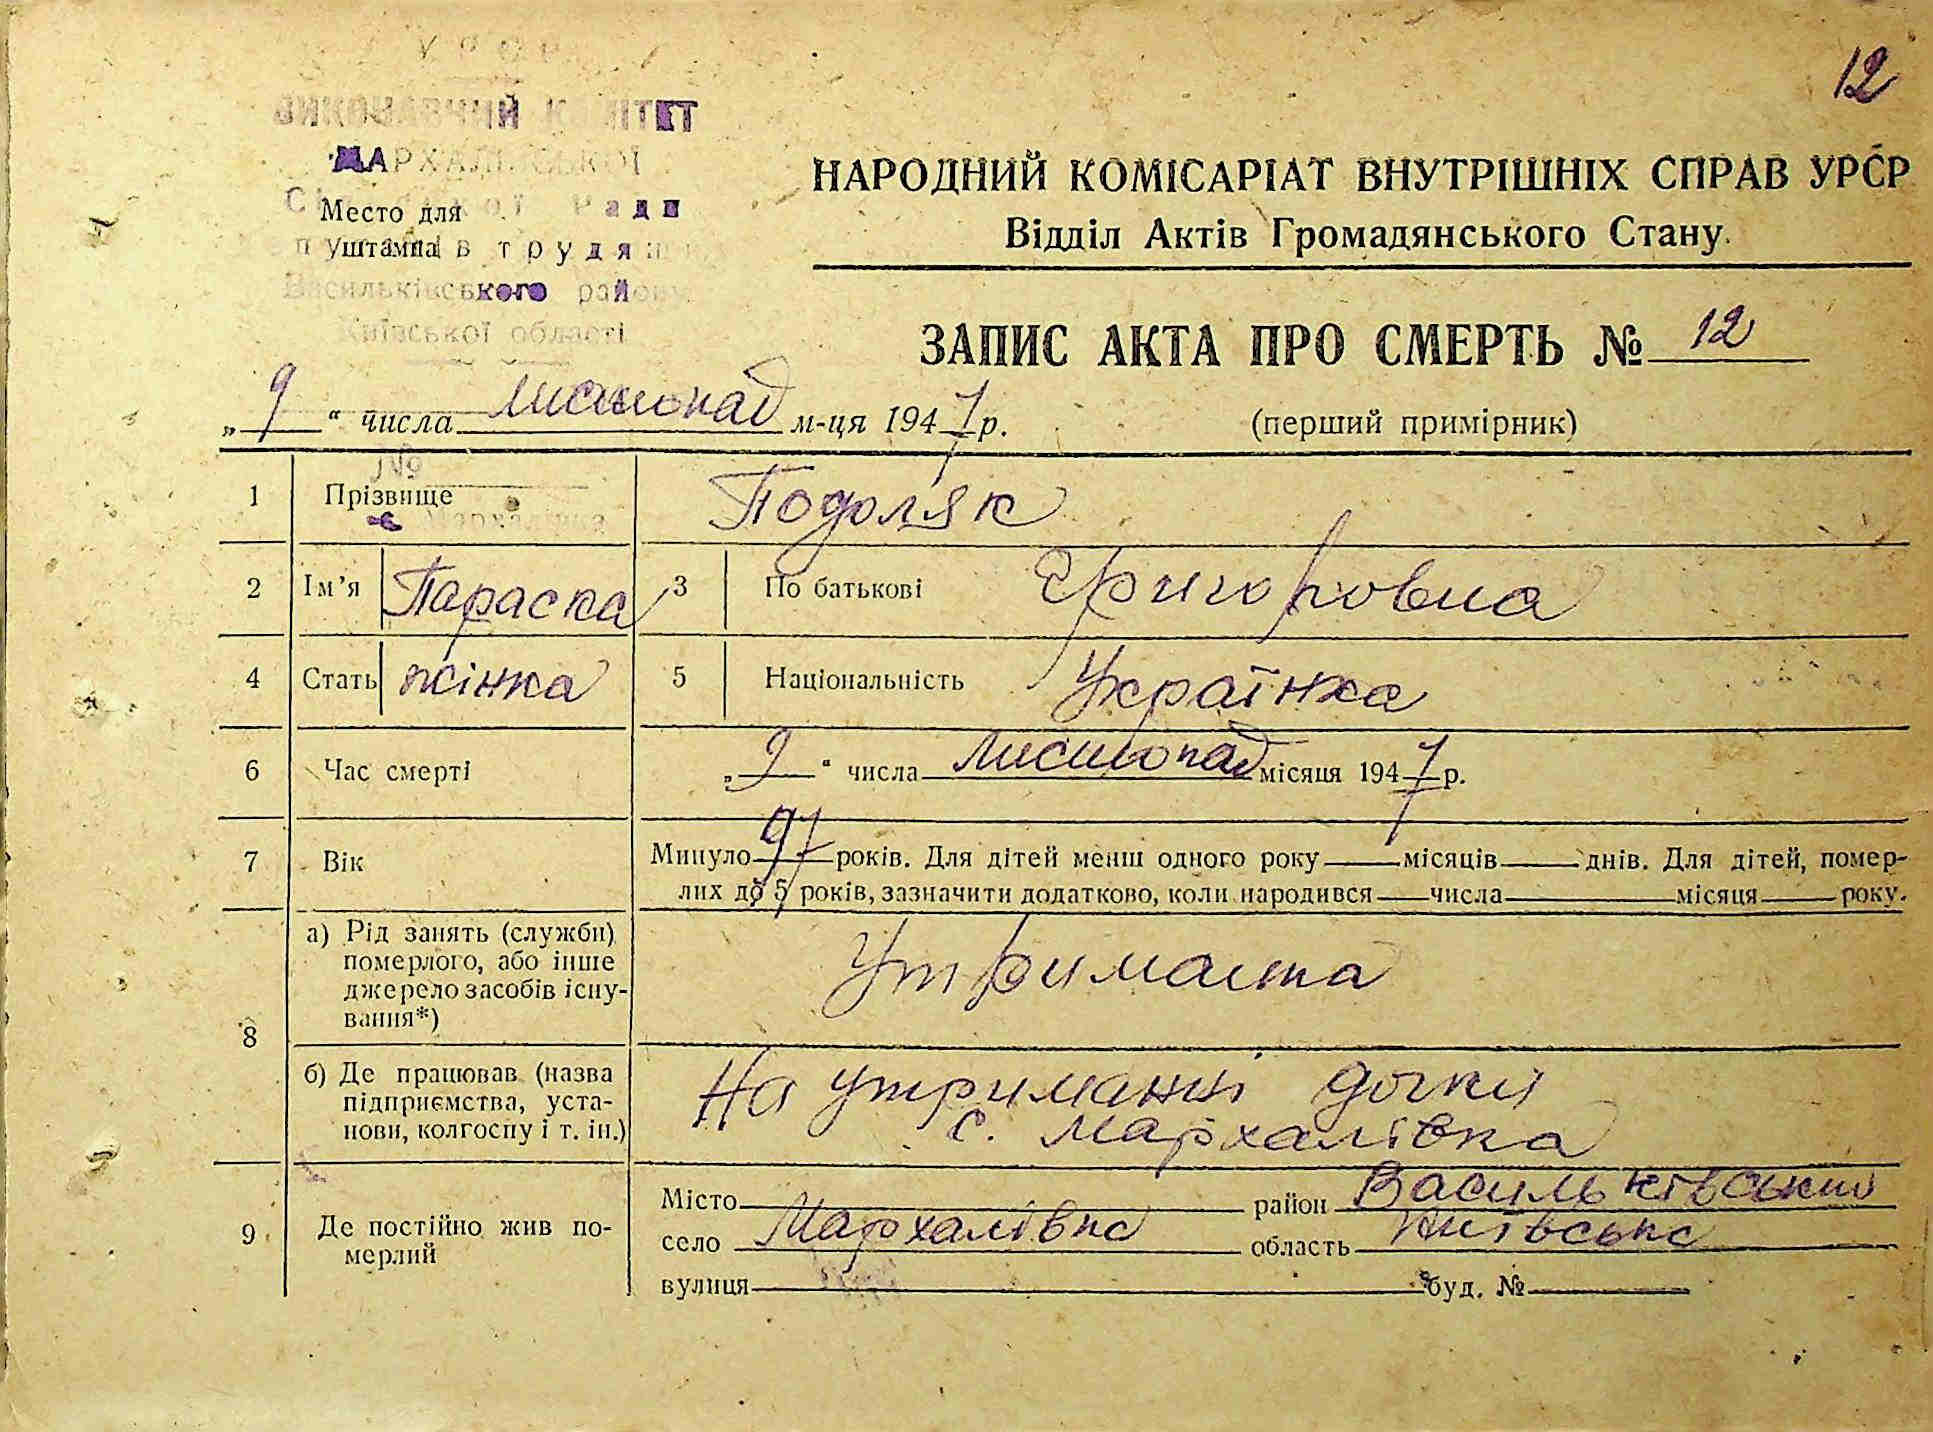 УРСР
ВИКОНАВЧИЙ КОМІТЕТ
МАРХАЛІВСЬКОЇ
Сільської Ради
Место для
штампа
депутатів трудящ
Васильківського району
Київської області
12
НАРОДНИЙ КОМІСАРІАТ ВНУТРІШНІХ СПРАВ УРСР
Відділ Актів Громадянського Стану.
ЗАПИС АКТА ПРО СМЕРТЬ № 12
„9“ числа листопад м-ця 1947 р.
(перший примірник)
№
с Мархалівка
1 Прізвище Подоляк
2 Ім'я Параска 3 По батькові Григоровна
4 Стать жінка 5 Національність Українка
6 Час смерті „9“ числа листопад місяця 1947 р.
7 Вік Минуло 97 років. Для дітей менш одного року місяців днів. Для дітей, помер-
лих до 5 років, зазначити додатково, коли народився числа місяця року.
8 а) Рід занять (служби)
померлого, або інше
джерело засобів існу-
вання*)
Утриманка
б) Де працював (назва
підприємства, уста-
нови, колгоспу і т. ін.)
На утриманні дочки
с. Мархалівка
9 Де постійно жив по-
мерлий
Місто район Васильківський
село Мархалівка область Київська
вулиця буд. №